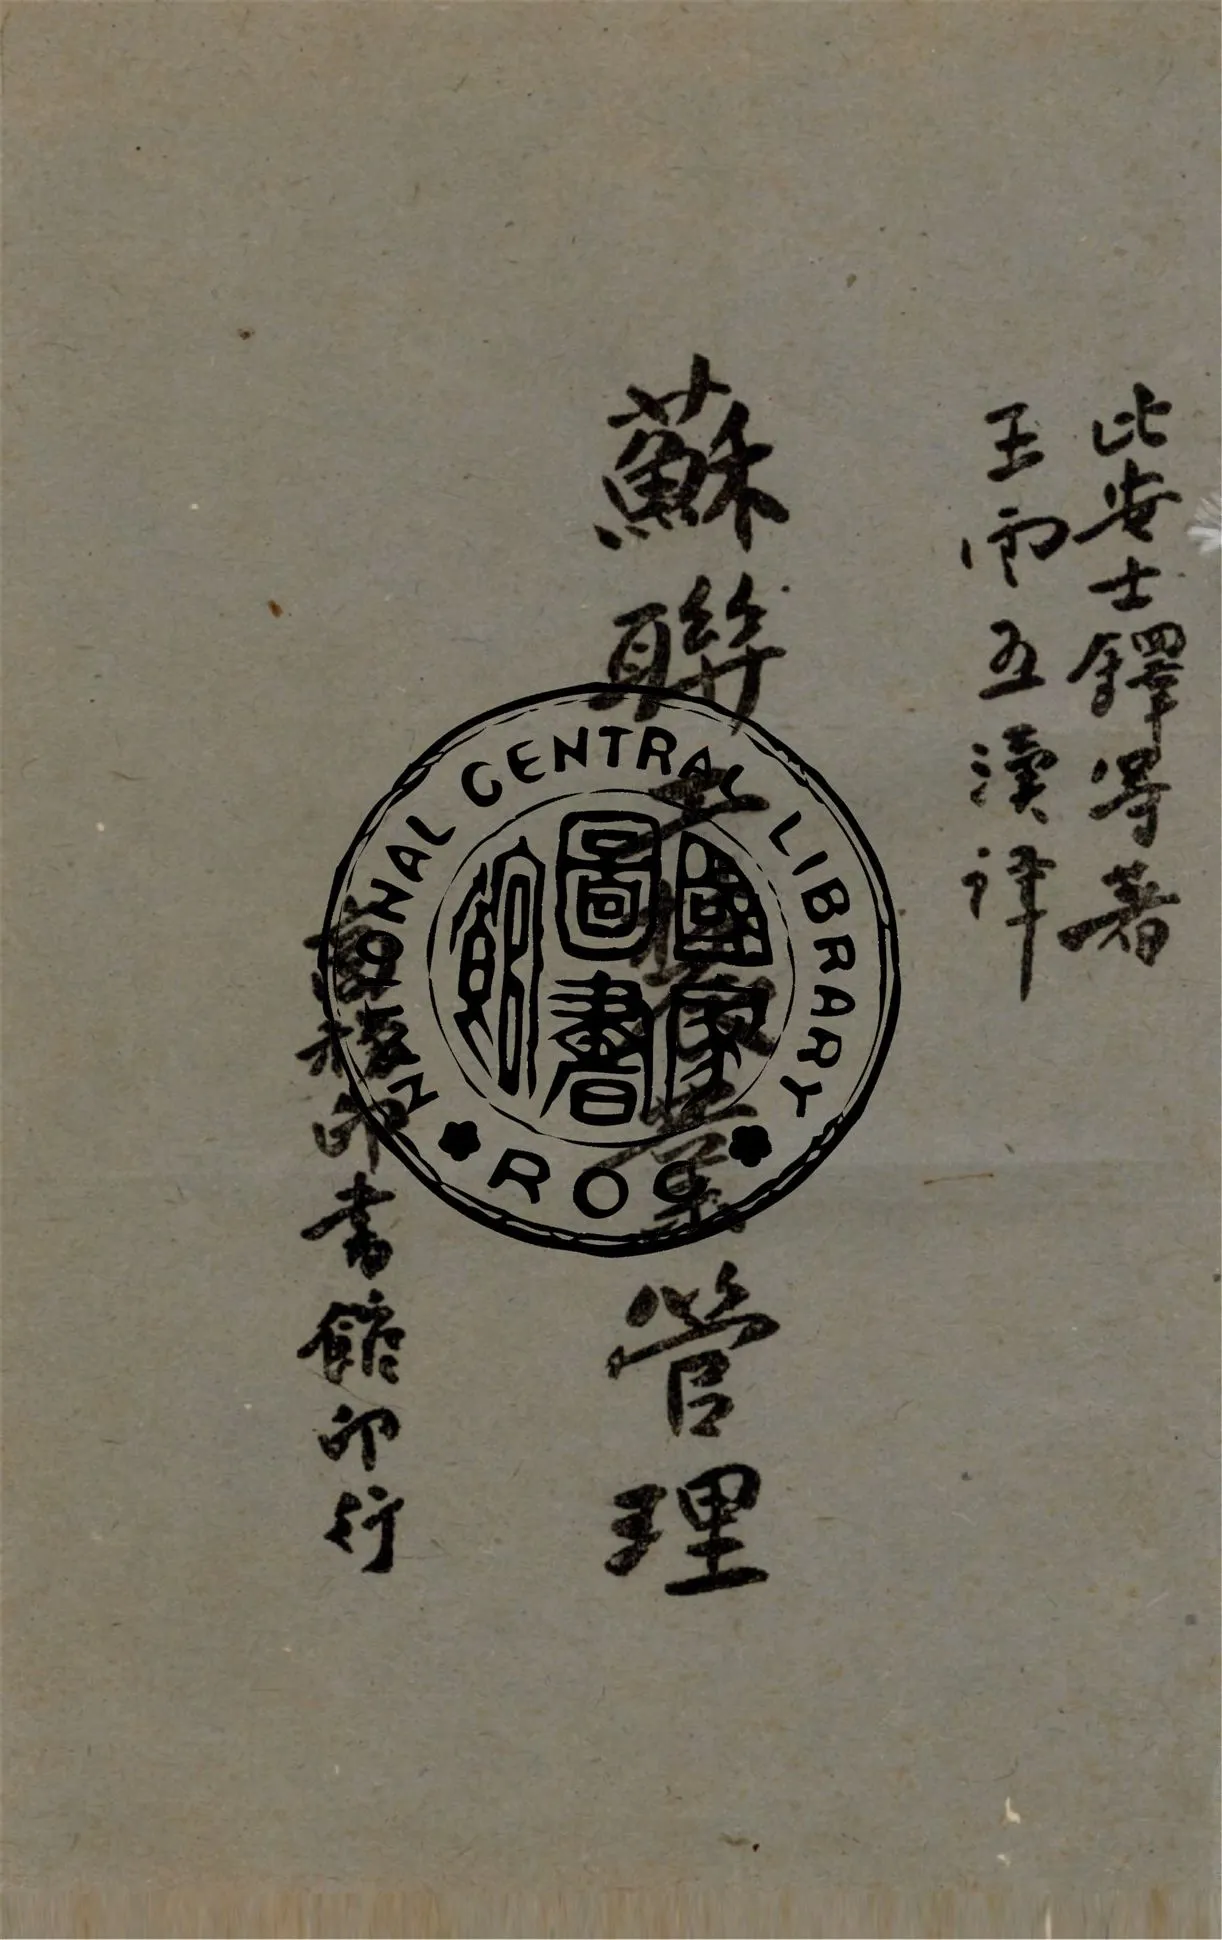 比安士鐸等著
王雲五漢譯
蘇聯工農業管理
商務印書館印行
NATIONAL CENTRAL LIBRARY
國家圖書館
ROC